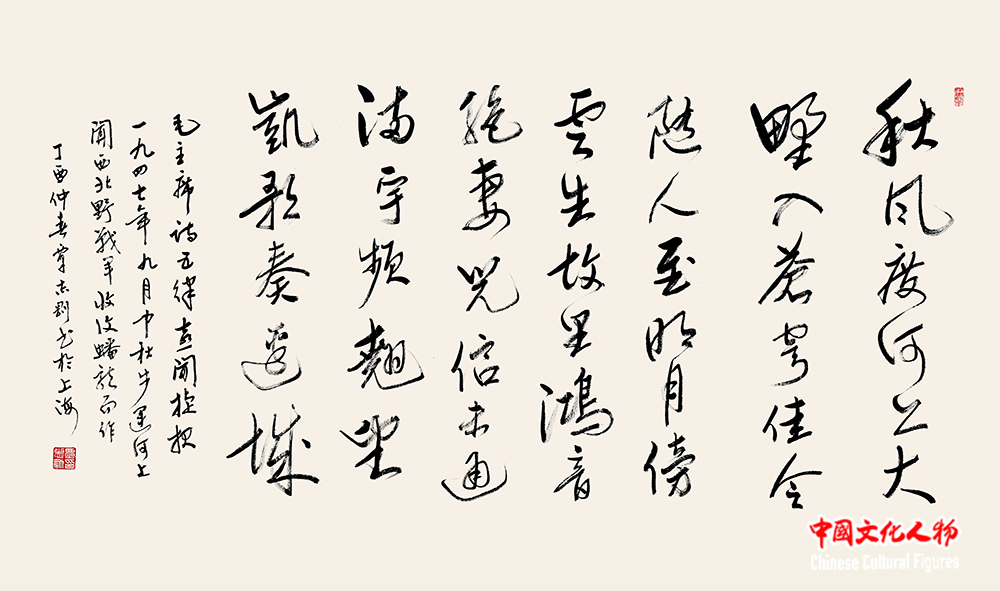 秋风度河上大
野入蒼穹佳令
随人至明月傍
雲生故里鴻音
絕妻兒信未通
满宇頻翹望
凱歌奏邊城
毛主席诗五律喜聞捷报
一九四七年九月中秋步運河上
聞西北野戰軍收復蟠龍而作
丁酉仲春覃志刚书於上海
中國文化人物
Chinese Cultural Figures